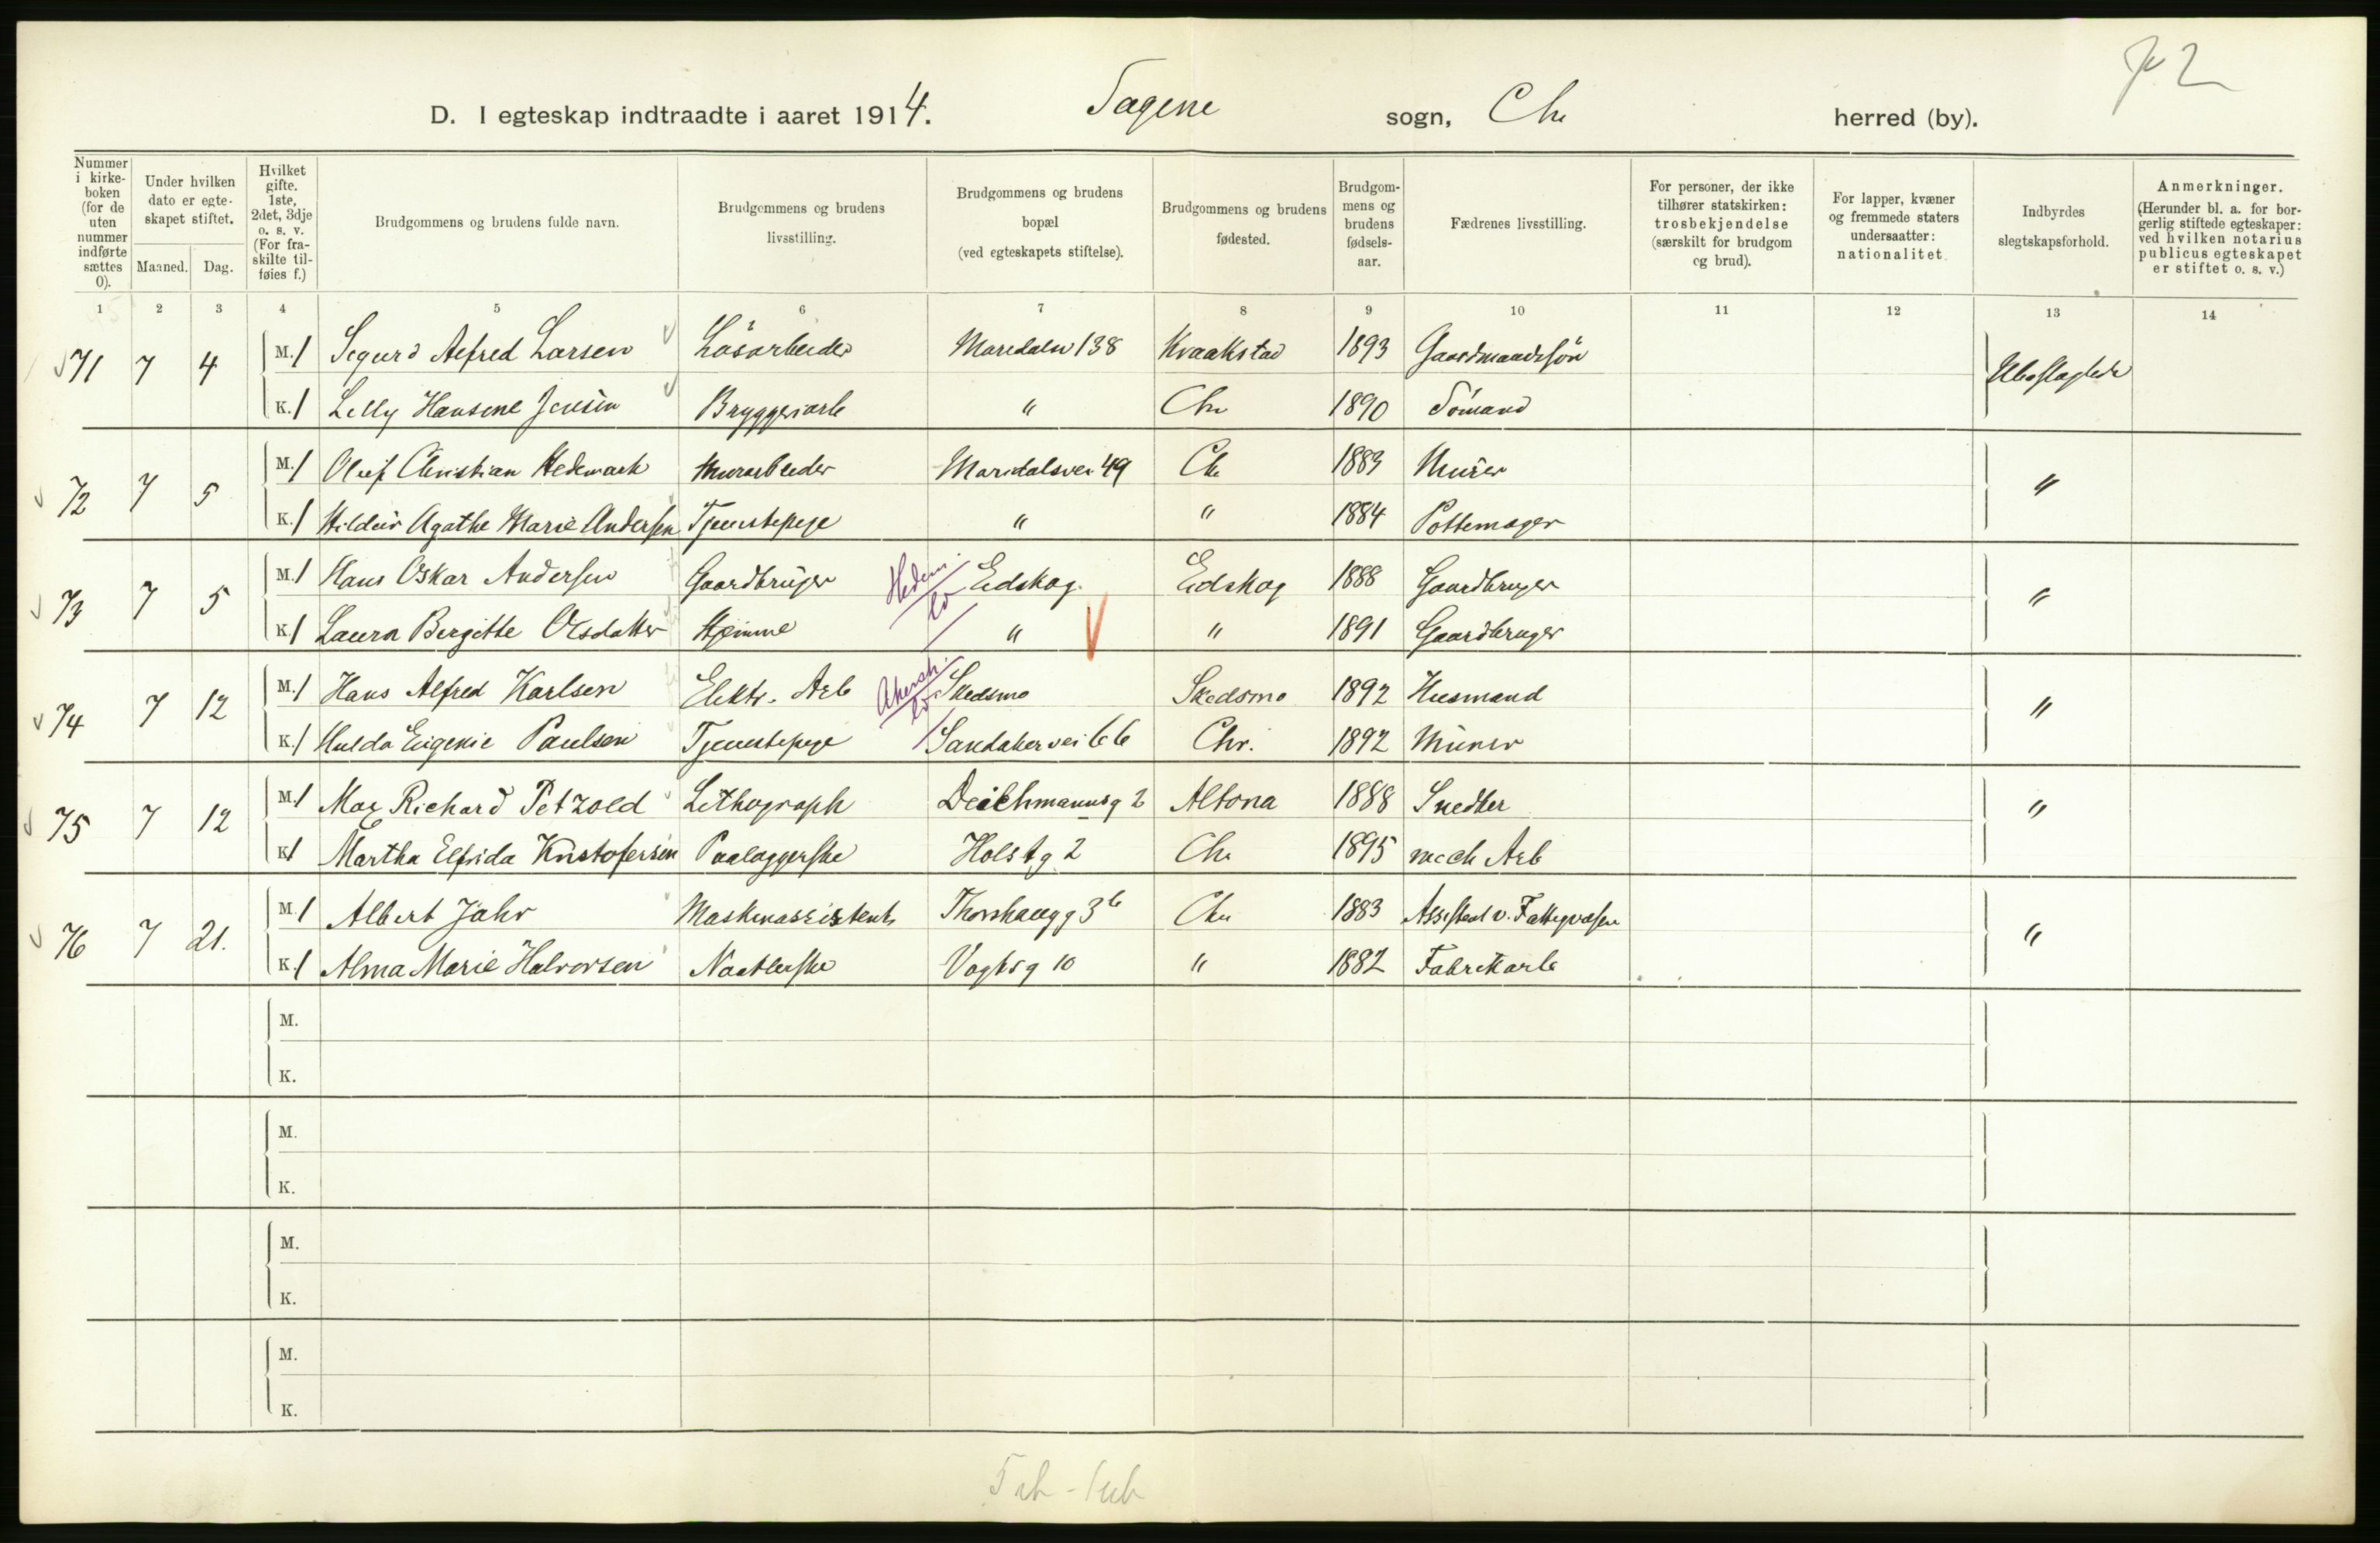 D. I egteskap indtraadte i aaret 1914. Sagene sogn, Chr herred (by).
Nummer i kirkeboken (for de uten nummer indførte sættes 0).
Under hvilken dato er egteskapet stiftet.
Maaned. Dag.
Hvilket gifte. 1ste, 2det, 3dje o. s. v. (For fraskilte tilføies f.)
Brudgommens og brudens fulde navn.
Brudgommens og brudens livsstilling.
Brudgommens og brudens bopæl (ved egteskapets stiftelse).
Brudgommens og brudens fødested.
Brudgommens og brudens fødselsaar.
Fædrenes livsstilling.
For personer, der ikke tilhører statskirken: trosbekjendelse (særskilt for brudgom og brud).
For lapper, kvæner og fremmede staters undersaatter: nationalitet.
Indbyrdes slegtskapsforhold.
Anmerkninger. (Herunder bl. a. for borgerlig stiftede egteskaper: ved hvilken notarius publicus egteskapet er stiftet o. s. v.)
1 2 3 4 5 6 7 8 9 10 11 12 13 14
71 7 4 M. 1 Sigurd Alfred Larsen Løsarbeider Maridalsv 138 Kraakstad 1893 Gaardmandssøn Ubeslægtede
K. 1 Lilly Hansine Jensen Bryggeriarb " Chr 1890 Sömand
72 7 5 M. 1 Oluf Christian Hedemark Murarbeider Maridalsvei 49 Chr 1883 Murer "
K. 1 Hildur Agathe Marie Andersen Tjenestepige " " 1884 Pottemager
73 7 5 M. 1 Hans Oskar Andersen Gaardbruger Hedm Eidskog Eidskog 1888 Gaardbruger "
K. 1 Laura Bergitte Olsdatter Hjemme " " 1891 Gaardbruger
74 7 12 M. 1 Hans Alfred Karlsen Elektr. Arb Akersh. Skedsmo Skedsmo 1892 Husmand "
K. 1 Hulda Eugenie Paulsen Tjenestepige Sandakervei 66 Chr. 1892 Murer
75 7 12 M. 1 Max Richard Petzold Lithograph Deichmannsg 2 Altona 1888 Snedker "
K. 1 Martha Elfrida Kristofersen Paalæggerske Holstg 2 Chr 1895 mech Arb
76 7 21. M. 1 Albert Jahr Maskinassistent Thorshaugg 3b Chr 1883 Assistent v. Fattigvæsen "
K. 1 Alma Marie Halvorsen Naatlerske Vogtsg 10 " 1882 Fabrikarb
M.
K.
M.
K.
M.
K.
M.
K.